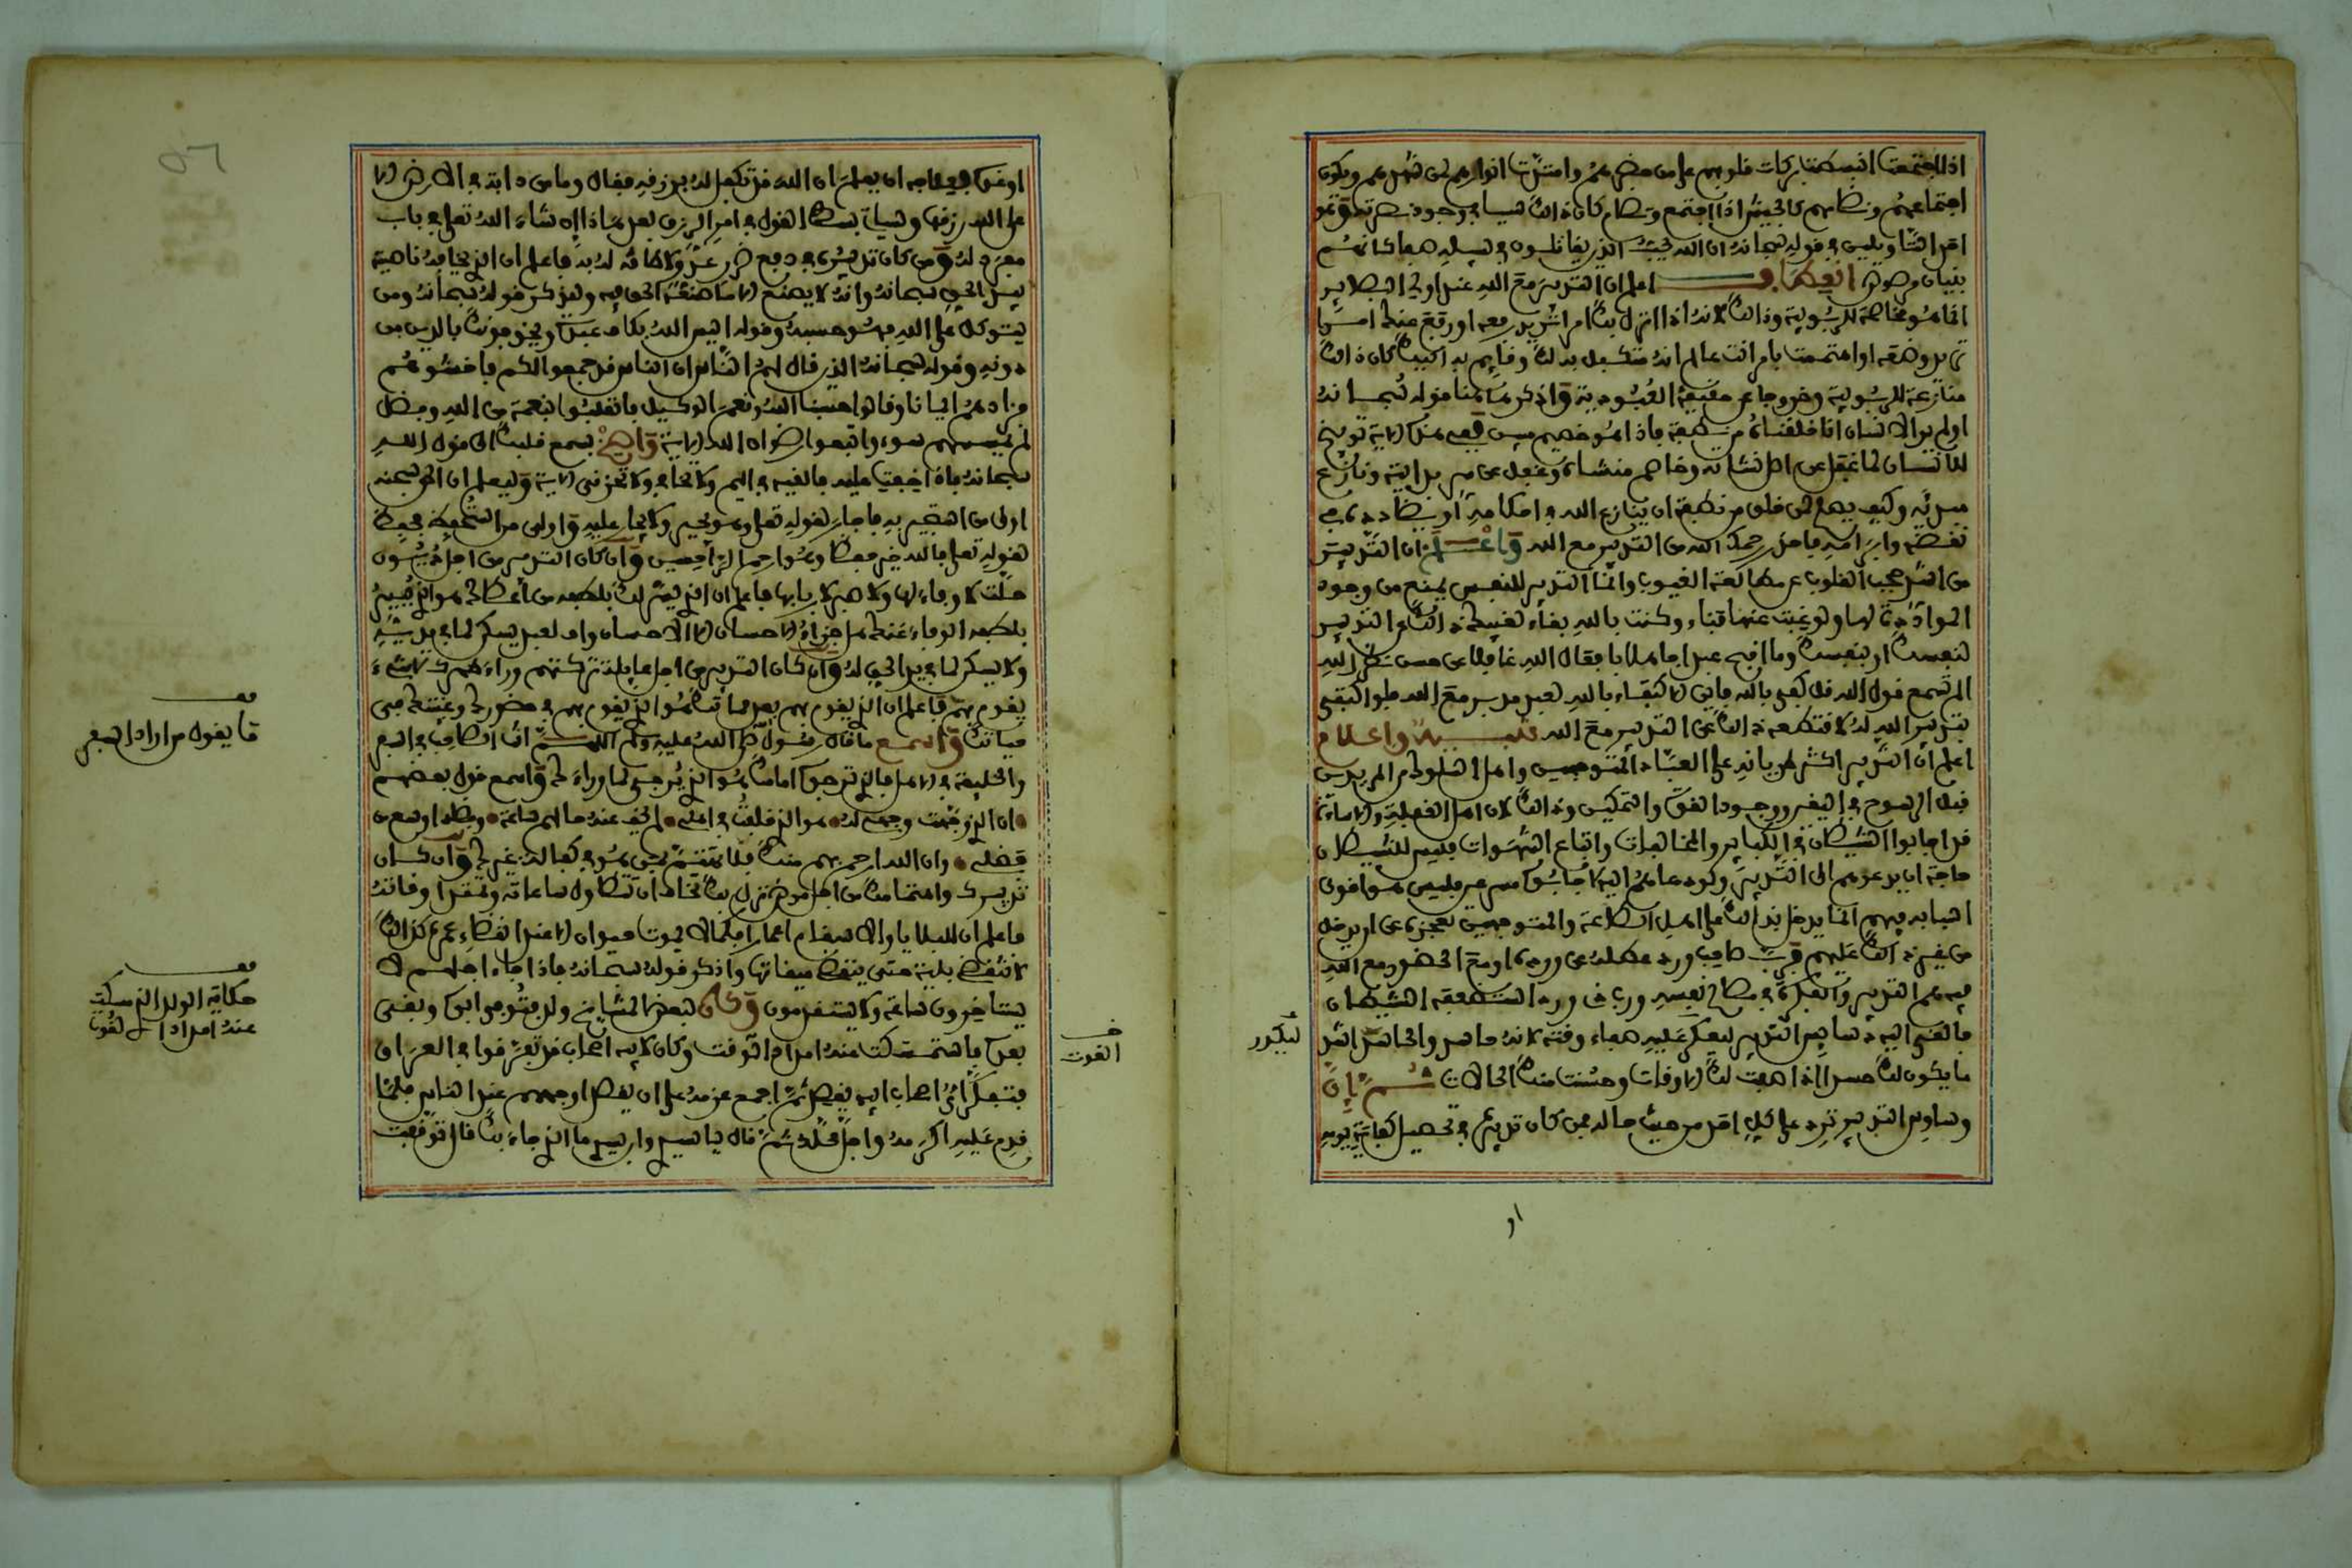 اذا اجتمعت انبسطت بركات قلوبهم على من حضرهم وامتدت انوارهم لمن شهدهم ويكون
اجتماعهم ونظامهم كالجيش اذا اجتمع ونظام كان ذالك سببا في وجود نصرته وهو
احد التاويلين في قوله سبحانه ان الله يحب الذين يقاتلون في سبيله صفا كانهم
بنيان مرصوص انعطاف اعلم ان التدبير مع الله عند اولي البصاير
انما هو مخاصمة للربوبية وذالك لانه اذا انزل بك امر تريد رفعه او رفع عنك امر
تريد وضعه او اهتممت بامر انت عالم انه متكفل به لك وقايم به اليك كان ذالك
منازعة للربوبية وخروجا عن حقيقة العبودية واذكر هاهنا قوله سبحانه
اولم ير الانسان انا خلقناه من نطفة فاذا هو خصيم مبين ففي هذه الاية توبيخ
للانسان لما غفل عن اصل نشاته وخاصم منشاه وغفل عن سر بدايته ونازع
مبديه وكيف يصح لمن خلق من نطفة ان ينازع الله في احكامه او يضادده في
نقضه وابرامه فاحذر رحمك الله من التدبير مع الله واعلم ان التدبير
من اشد حجب القلوب عن مطالعة الغيوب وانما التدبير للنفس ينبع من وجود
الموادة لها ولو غبت عنها فناء وكنت بالله بقاء لغيبك ذالك عن التدبير
لنفسك او بنفسك وما اقبح عبدا جاهلا بافعال الله غافلا عن حسن نظر الله
الم تسمع قول الله قل كفى بالله فاين الاكتفاء بالله لعبد مدبر مع الله فلو اكتفى
بتدبير الله له لاقتطعه ذالك عن التدبير مع الله تنبيه واعلام
اعلم ان التدبير اكثر طريانه على العباد المتوجهين واهل السلوك من المريدين
قبل الرسوخ في اليقين ووجود القوة والتمكين وذالك لان اهل الغفلة والاساءة
قد اجابوا الشيطان في الكباير والمخالفات واتباع الشهوات فليس للشيطان
حاجة ان يدعوهم الى التدبير ولو دعاهم اليه لاجابوه مسرعين فليس هو اقوى
اسبابه فيهم انما يدخل بذالك على اهل الطاعة والمتوجهين لعجزه عن ان يدخل
من غير ذالك عليهم فرب صاحب ورد عطله عن ورده او مع الحضور مع الله
فيه هم التدبير والفكرة في مصالح نفسه ورب ذي ورد استضعفه الشيطان
فالقى اليه دسايس التدبير ليعكر عليه صفاء وقته لانه حاسد والحاسد اشد
ما يكون لك حسدا اذا صفت لك الاوقات وحسنت منك الحالات ثم ان
وساوس التدبير ترد على كل احد من حيث حاله فمن كان تدبيره في تحصيل كفاية يومه
او
ليكدر
او غده فعلاجه ان يعلم ان الله قد تكفل له برزقه فقال وما من دابة في الارض الا
على الله رزقها وسياتي بسط القول في امر الرزق بعد هذا ان شاء الله تعلى في باب
مفرد له ومن كان تدبيره في دفع ضرر عدو لا طاقة له به فاعلم ان الذي يخافه ناصيته
بيد الحق سبحانه وانه لا يصنع الا ما صنعه الحق فيه وليذكر قوله سبحانه ومن
يتوكل على الله فهو حسبه وقوله اليس الله بكاف عبده ويخوفونك بالذين من
دونه وقوله سبحانه الذين قال لهم الناس ان الناس قد جمعوا لكم فاخشوهم
فزادهم ايمانا وقالوا حسبنا الله ونعم الوكيل فانقلبوا بنعمة من الله وفضل
لم يمسسهم سوء واتبعوا رضوان الله الاية واصغ بسمع قلبك الى قول الله
سبحانه فاذا خفت عليه فالقيه في اليم ولا تخافي ولا تحزني الاية وليعلم ان الحق سبحنه
اولى من استجير به فاجار لقوله تعلى وهو يجير ولا يجار عليه واولى من استحفظ فحفظ
لقوله تعلى فالله خير حفظا وهو ارحم الراحمين وان كان التدبير من اجل ديون
حلت لا وفاء لها ولا صبر لاربابها فاعلم ان الذي يسر لك بلطفه من اعطاك هو الذي ييسر
بلطفه الوفاء عنك هل جزاء الاحسان الا الاحسان واف لعبد يسكن لما في يديه
ولا يسكن لما في يد الحق له وان كان التدبير من اجل عايلة تركتهم وراءك لا شيء
يقوم بهم فاعلم ان الذي يقوم بهم بعد مماتك هو الذي يقوم بهم في حضورك وغيبتك في
حياتك واسمع ما قال رسول الله صلى الله عليه وسلم اللهم انت الصاحب في السفر
والخليفة في الاهل فالذي ترجوه امامك هو الذي يرجى لما وراءك واسمع قول بعضهم
ان الذي وجهت وجهي له هو الذي خلفت في اهلي لم يخف عنه حالهم ساعة وفضله اوسع من
فضلي وان الله ارحم بهم منك فلا تهتم بمن هو في كفالة غيرك وان كان
تدبيرك واهتمامك من اجل مرض نزل بك تخاف ان تتطاول ساعاته وتمتد اوقاته
فاعلم ان للبلايا والاسقام اعمارا فكما لا يموت حيوان الا عند انقضاء عمره كذالك
لا تنقضي بلية حتى ينقضي ميقاتها واذكر قوله سبحانه فاذا جاء اجلهم لا
يستاخرون ساعة ولا يستقدمون وكان لبعض المشايخ ولد فتوفي ابوه وبقي
بعده فاستمسكت عنه امداد الوقت وكان لابيه اصحاب قد تفرقوا في العراق
فتفكر اي اصحاب ابيه يقصد ثم اجمع عزمه على ان يقصد اوجههم عند الناس فلما
قدم عليه اكرمه واجل محله ثم قال يا سيدي وابن سيدي ما الذي جاء بك فقال توقفت
القوت
قف
ما يقول من اراد السفر
قف
حكاية الولد الذي مسكت
عنه امداد القوت